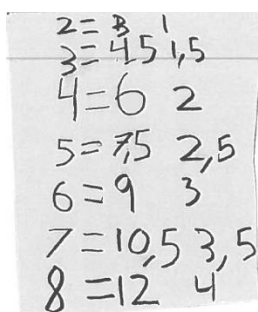 2 = 3 1
3 = 45 1,5
4 = 6 2
5 = 7,5 2,5
6 = 9 3
7 = 10,5 3,5
8 = 12 4